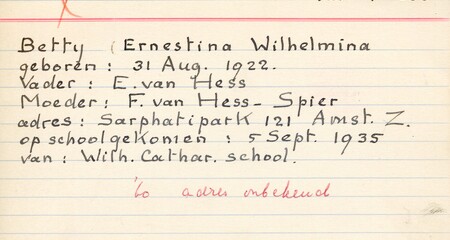 Betty Ernestina Wilhelmina
geboren : 31 Aug. 1922.
Vader : E. van Hess
Moeder : F. van Hess - Spier
adres : Sarphatipark 121 Amst. Z.
op school gekomen : 5 Sept. 1935
van : Wilh. Cathar. school.
adres onbekend